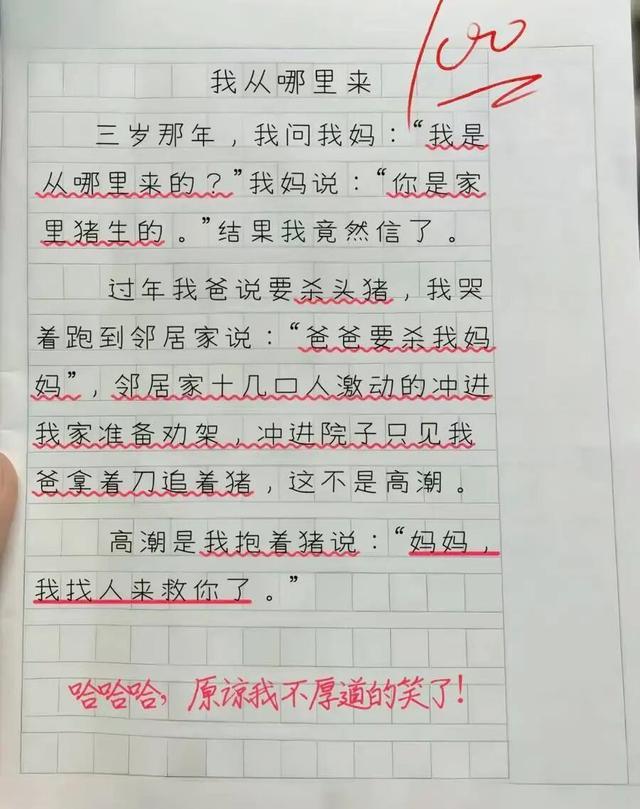 100
我从哪里来
三岁那年，我问我妈：“我是
从哪里来的？”我妈说：“你是家
里猪生的。”结果我竟然信了。
过年我爸说要杀头猪，我哭
着跑到邻居家说：“爸爸要杀我妈
妈”，邻居家十几口人激动的冲进
我家准备劝架，冲进院子只见我
爸拿着刀追着猪，这不是高潮。
高潮是我抱着猪说：“妈妈，
我找人来救你了。”
哈哈哈，原谅我不厚道的笑了！